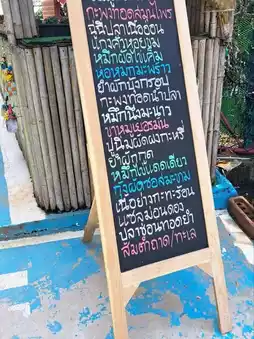 กะพงทอดสมุนไพร
ฉู่ฉี่ปลาเนื้ออ่อน
แกงคั่วหอยขม
หมึกผัดไข่เค็ม
ห่อหมกมะพร้าว
ยำผักบุ้งกรอบ
กะพงทอดน้ำปลา
หมึกนึ่งมะนาว
ขาหมูเยอรมัน
ปูนิ่มผัดผงกะหรี่
ยำผักกูด
หมึกไข่แดดเดียว
กุ้งผัดซอสมะขาม
เนื้อย่างกะทะร้อน
แซลมอนดอง
ปลาช่อนทอดยำ
ส้มตำถาด/ทะเล